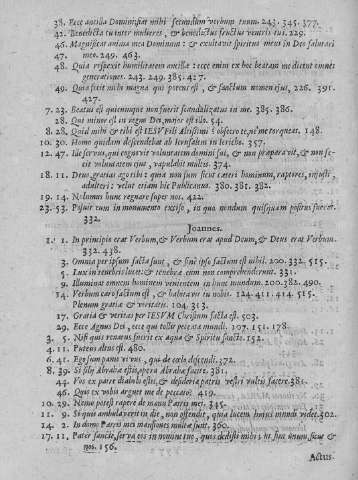 38. Ecce ancilla Domini, fiat mihi secundum verbum tuum. 243. 345. 377.
42. Benedicta tu inter mulieres, & benedictus fructus ventris tui. 229.
46. Magnificat anima mea Dominum: & exultavit spiritus meus in Deo salutari
47. meo. 249. 463.
48. Quia respexit humilitatem ancillæ: ecce enim ex hoc beatam me dicent omnes
generationes. 243. 249. 385. 427.
49. Quia fecit mihi magna qui potens est, & sanctum nomen ejus, 226. 391.
427.
7. 23. Beatus est quicunque non fuerit scandalizatus in me. 385. 386.
28. Qui minor est in regno Dei, major est illo. 54.
8. 28. Quid mihi & tibi est IESV Fili Altissimi? obsecro te, ne me torqueas. 148.
10. 30. Homo quidam descendebat ab Ierusalem in Iericho. 357.
12. 47. Ille servus, qui cognovit voluntatem domini sui, & non præparavit, & non fe-
cit voluntatem ejus, vapulabit multis. 374.
18. 11. Deus, gratias ago tibi: quia non sum sicut cæteri hominum, raptores, injusti,
adulteri: velut etiam hic Publicanus. 380. 381. 382.
19. 14. Nolumus hunc regnare super nos. 422.
23. 53. Posuit eum in monumento exciso, in quo nondum quisquam positus fuerat.
332.
Joannes.
1. 1. In principio erat Verbum, & Verbum erat apud Deum, & Deus erat Verbum.
332. 438.
3. Omnia per ipsum facta sunt, & sine ipso factum est nihil. 200. 332. 515.
5. Lux in tenebris lucet: & tenebræ eam non comprehenderunt. 331.
9. Illuminat omnem hominem venientem in hunc mundum. 200. 282. 490.
14. Verbum caro factum est, & habitavit in nobis. 124. 411. 414. 515.
Plenum gratiæ & veritatis. 104. 313.
17. Gratia & veritas per IESVM Christum facta est. 503.
29. Ecce Agnus Dei, ecce qui tollit peccata mundi. 107. 151. 178.
3. 5. Nisi quis renatus fuerit ex aqua & Spiritu sancto. 152.
4. 11. Puteus altus est. 480.
6. 41. Ego sum panis vivus, qui de cœlo descendi. 172.
8. 39. Si filii Abrahæ estis, opera Abrahæ facite. 381.
44. Vos ex patre diabolo estis, & desideria patris vestri vultis facere. 381.
46. Quis ex vobis arguet me de peccato? 459.
10. 29. Nemo potest rapere de manu Patris mei. 345.
11. 9. Si quis ambulaverit in die, non offendit, quia lucem hujus mundi videt. 302.
14. 2. In domo Patris mei mansiones multæ sunt. 360.
17. 11. Pater sancte, serva eos in nomine tuo, quos dedisti mihi: ut sint unum, sicut &
nos. 156.
Actus.